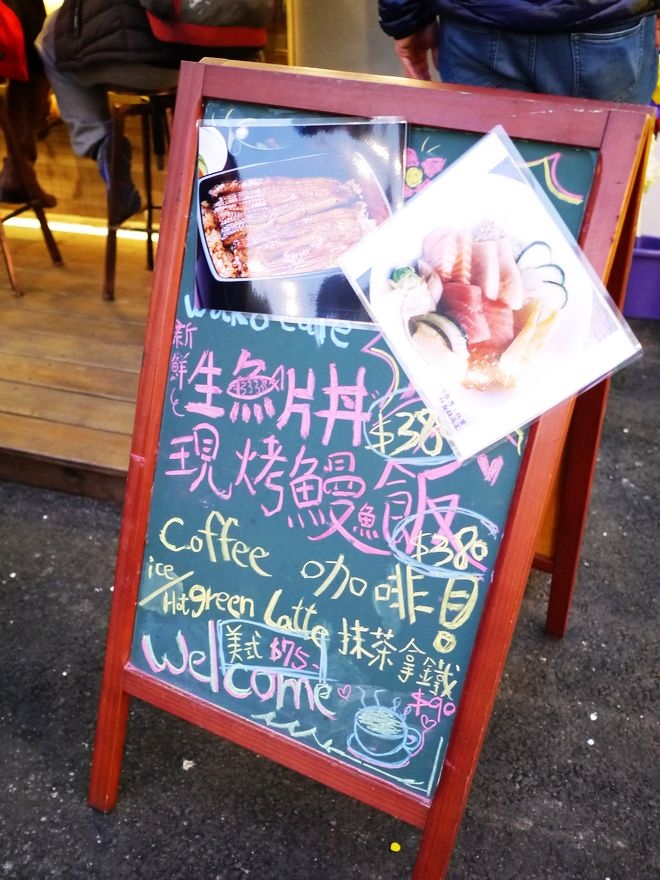 wako cafe
新鮮
生魚片丼 $380
現烤鰻魚飯 $380
Coffee 咖啡!
ice/Hot green Latte 抹茶拿鐵 $90
美式 $75-
Welcome